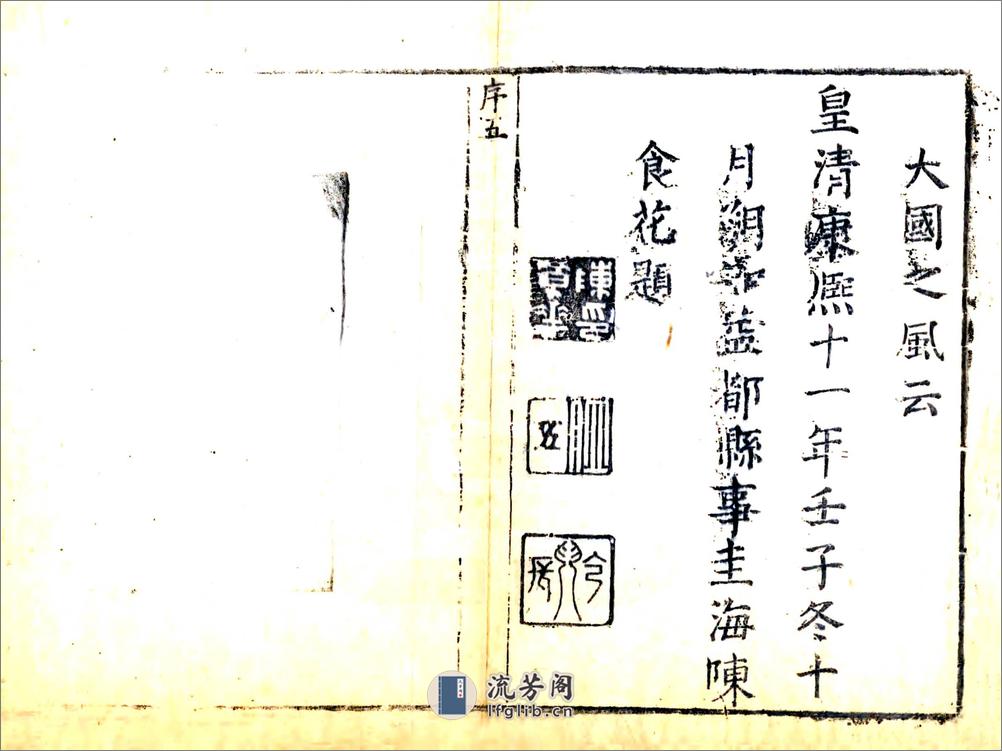 大國之風云
皇清康熈十一年壬子冬十
月朔知益都縣事圭海陳
食花題
序五
流芳阁
lfglib.cn